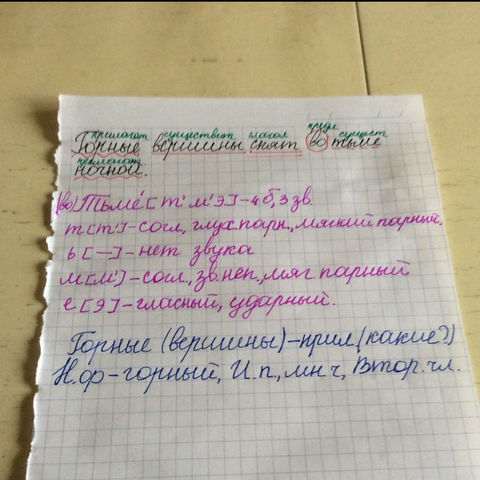 прилагат. существит. глагол предл. сущест.
Горные вершины спят во тьме
прилагат.
ночной.
(во) Тьме́ [т' м' э] - 4 б, 3 зв.
т [т'] - согл, глух парн., мягкий парный,
ь [—] - нет звука
м [м'] - согл, зв. неп., мяг парный
е [э] - гласный, ударный.
Горные (вершины) - прил (какие?)
Н. ф - горный, И. п, мн ч, Втор. чл.